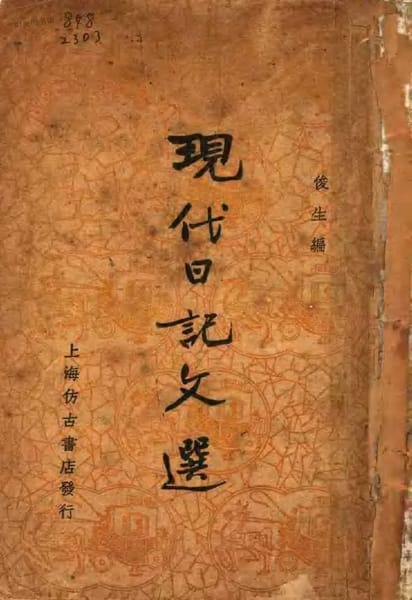 848
2303
俊生編
現代日記文選
上海仿古書店發行